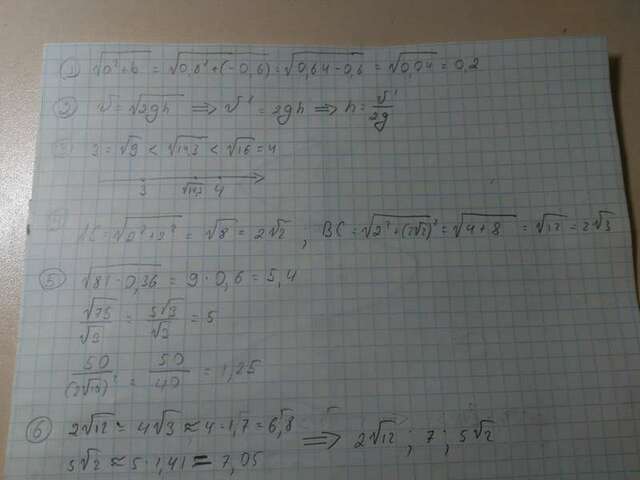 ① √(a²+b) = √(0,8²+(-0,6)) = √(0,64-0,6) = √0,04 = 0,2
② v = √(2gh) ⟹ v² = 2gh ⟹ h = v²/2g
③ 3 = √9 < √14,3 < √16 = 4
3 √14,3 4
④ AC = √(2²+2²) = √8 = 2√2 ; BC = √(2²+(2√2)²) = √(4+8) = √12 = 2√3
⑤ √(81·0,36) = 9·0,6 = 5,4
√75/√3 = 5√3/√3 = 5
50/(2√10)² = 50/40 = 1,25
⑥ 2√12 = 4√3 ≈ 4·1,7 = 6,8
5√2 ≈ 5·1,41 = 7,05 ⟹ 2√12 ; 7 ; 5√2